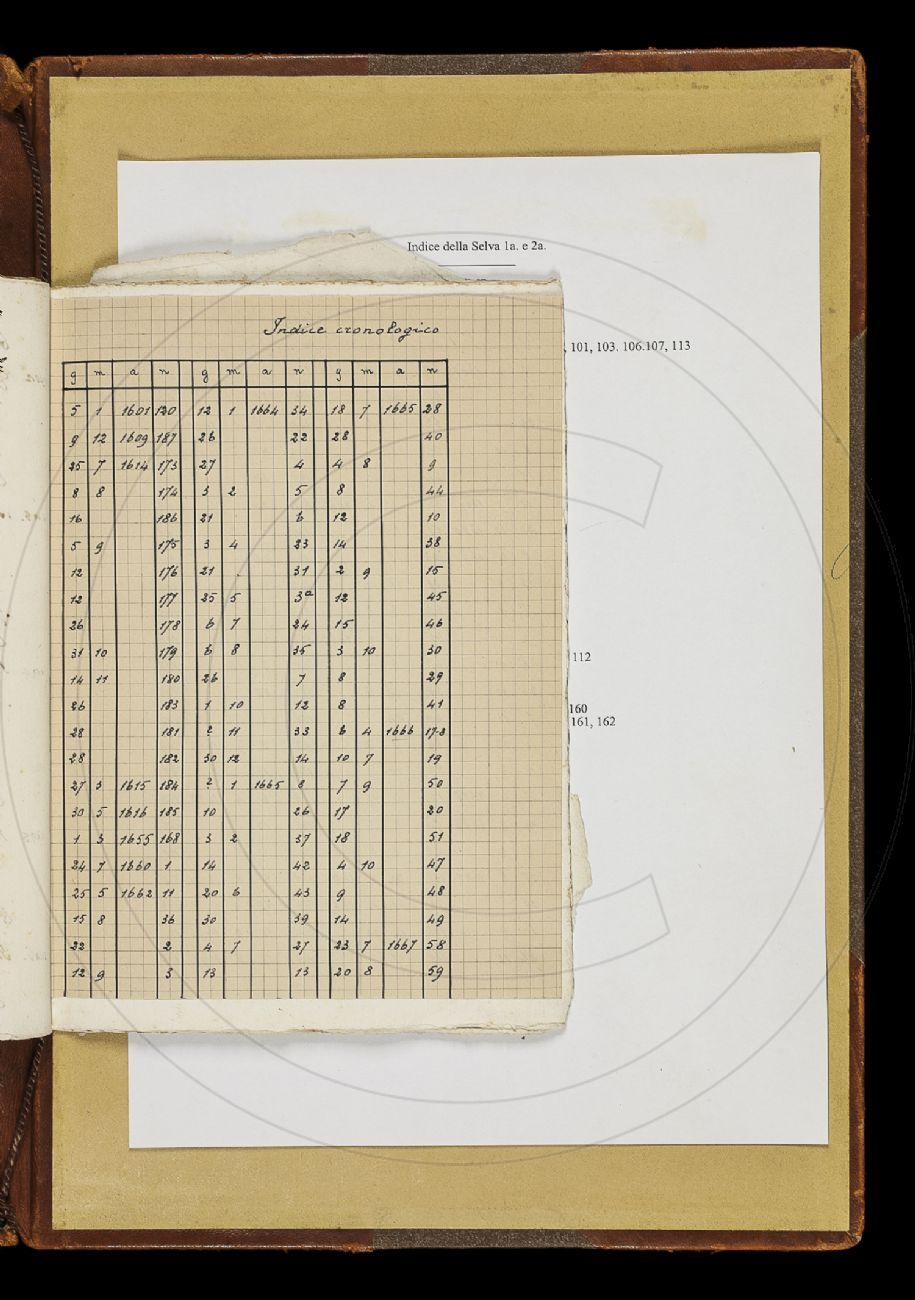 Indice della Selva 1a. e 2a.
, 101, 103. 106.107, 113
112
160
161, 162
Indice cronologico
g m a n g m a n g m a n
5 1 1601 120 12 1 1664 34 18 7 1665 28
9 12 1609 187 26 22 28 40
25 7 1614 173 27 4 4 8 9
8 8 174 3 2 5 8 44
16 186 21 6 12 10
5 9 175 3 4 23 14 38
12 176 21 . 31 2 9 15
12 177 25 5 3a 12 45
26 178 6 7 24 15 46
31 10 179 6 8 35 3 10 30
14 11 180 26 7 8 29
26 183 1 10 12 8 41
28 181 ? 11 33 6 4 1666 17-8
28 182 30 12 14 10 7 19
27 3 1615 184 ? 1 1665 8 7 9 50
30 5 1616 185 10 26 17 20
1 3 1655 168 3 2 37 18 51
24 7 1660 1 14 42 4 10 47
25 5 1662 11 20 6 43 9 48
15 8 36 30 39 14 49
22 2 4 7 27 23 7 1667 58
12 9 3 13 13 20 8 59